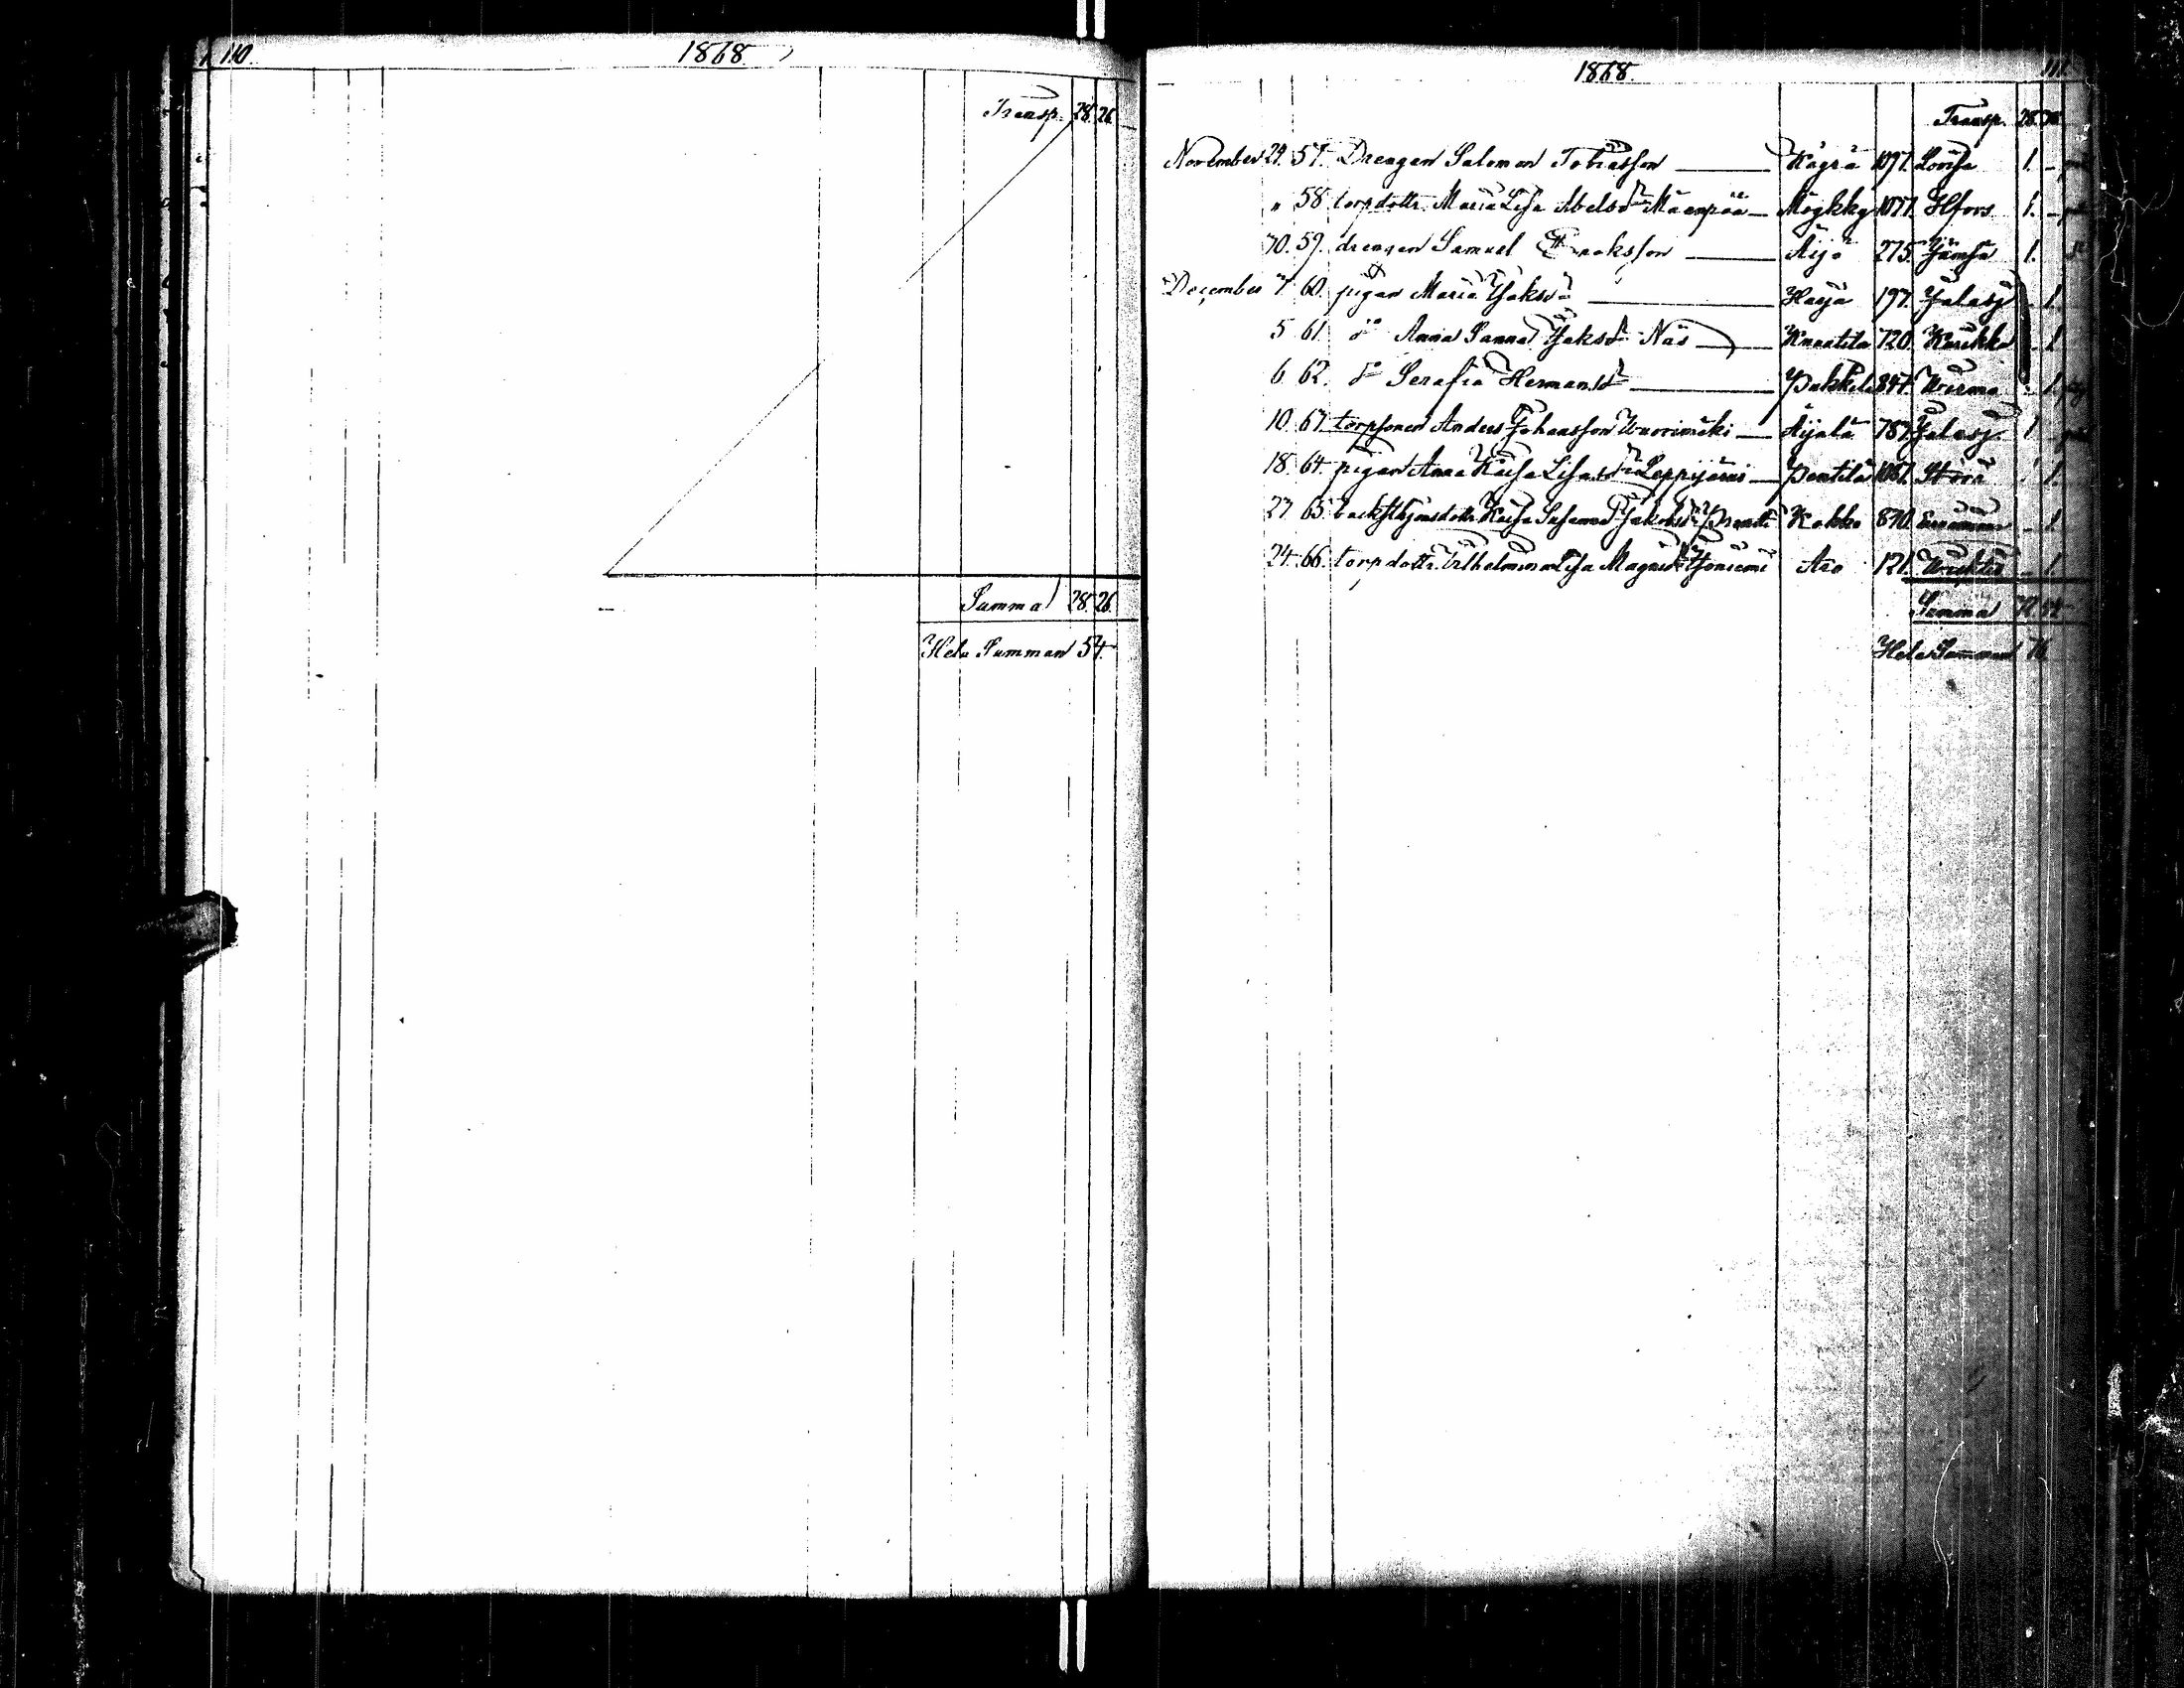 110.
1868.
Transp. 28. 26.
Summa 28. 26.
Hela Summan 54.
1868.
111.
Transp. 28.
November 29. 57. Drengen Salomon Tobiasson Kågrä 1097. Lovisa 1. -
" 58. torpdottr. Maria Lisa Abelsdr Maanpää 1077. Hfors 1. -
30. 59. drengen Samuel Äijö 275. Jämsä 1.
December 60. pigan Maria Jaksdr Harja 197. Jalasj. - 1.
5. 61. do Anna Sanna Jaksdr Näs 720. - 1
6. 62. do Serafia Hermansdr Pukkila 844. Wirmo - 1.
10. 63. torpsonen Anders Johansson Wuorimäki Äijälä 787. Jalasj. 1
18. 64. pigan Anna Kaisa Lisasdr Leppijärvi Pentilä 1087. Storå 1.
65. Kaisa Susanna Jakobsdr Kokko 870. - 1
24. 66. torpdottr. Wilhelmina Lisa Magnidr Aro 121. - 1
Summa
Hela Summan